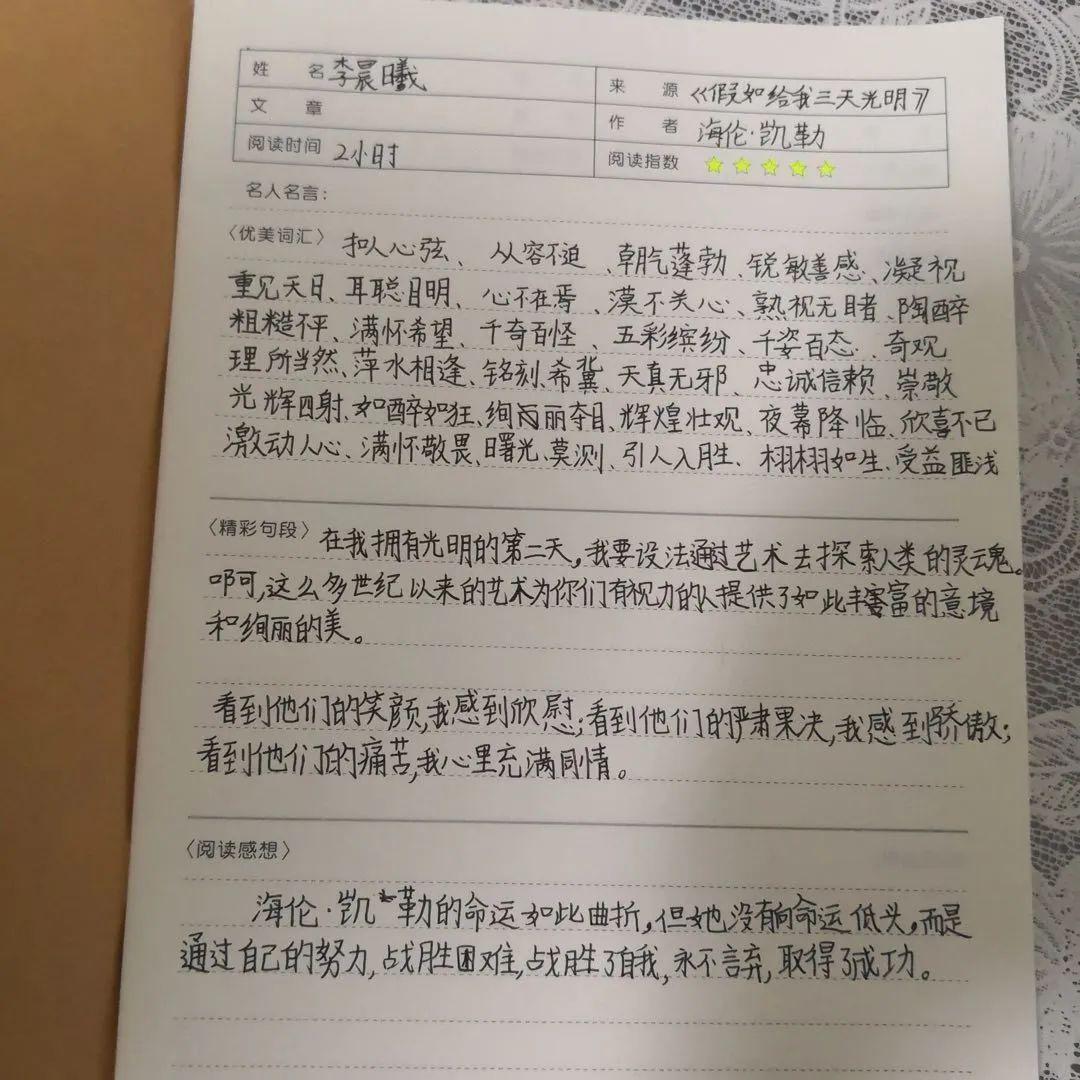 姓 名 李晨曦 来 源 《假如给我三天光明》
文 章 作 者 海伦·凯勒
阅读时间 2小时 阅读指数 ☆☆☆☆☆
名人名言:
〈优美词汇〉 扣人心弦、从容不迫、朝气蓬勃、锐敏善感、凝视
重见天日、耳聪目明、心不在焉、漠不关心、熟视无睹、陶醉
粗糙不平、满怀希望、千奇百怪、五彩缤纷、千姿百态、奇观
理所当然、萍水相逢、铭刻、希冀、天真无邪、忠诚信赖、崇敬
光辉四射、如醉如狂、绚丽夺目、辉煌壮观、夜幕降临、欣喜不已
激动人心、满怀敬畏、曙光、莫测、引人入胜、栩栩如生、受益匪浅
〈精彩句段〉 在我拥有光明的第二天,我要设法通过艺术去探索人类的灵魂。
啊,这么多世纪以来的艺术为你们有视力的人提供了如此丰富的意境
和绚丽的美。
看到他们的笑颜,我感到欣慰;看到他们的严肃果决,我感到骄傲;
看到他们的痛苦,我心里充满同情。
〈阅读感想〉
海伦·凯勒的命运如此曲折,但她没有向命运低头,而是
通过自己的努力,战胜困难,战胜了自我,永不言弃,取得了成功。